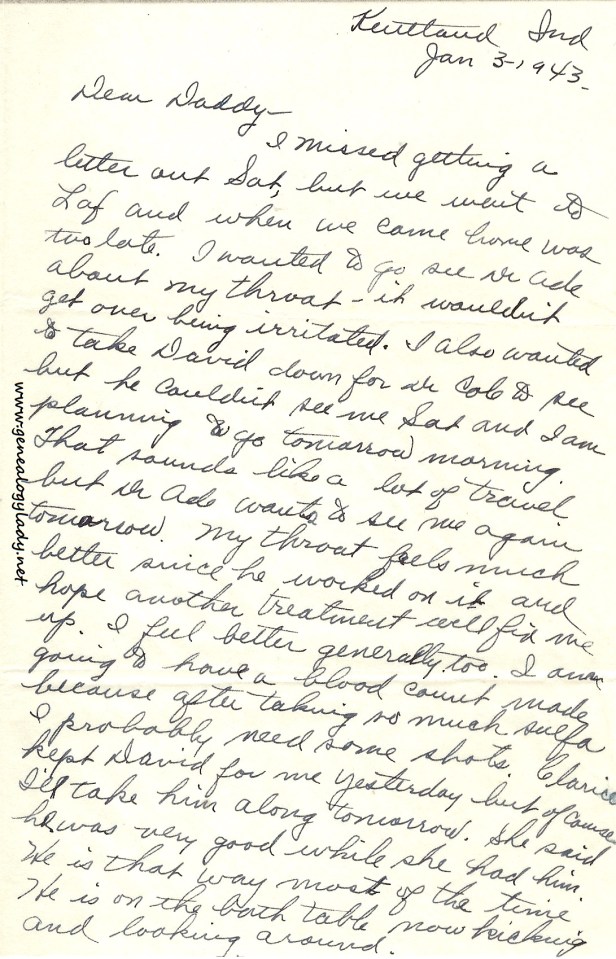 Kentland Ind
Jan 3-1943-
Dear Daddy-
I missed getting a
letter out Sat, but we went to
Laf and when we came home was
too late. I wanted to go see Dr Ade
about my throat - it wouldn't
get over being irritated. I also wanted
to take David down for Dr Cole to see
but he couldn't see me Sat and I am
planning to go tomorrow morning.
That sounds like a lot of travel
but Dr Ade wants to see me again
tomorrow. My throat feels much
better since he worked on it and
hope another treatment will fix me
up. I feel better generally too. I am
going to have a blood count made
because after taking so much sulfa
I probably need some shots. Clarice
kept David for me yesterday but of course
I'll take him along tomorrow. She said
he was very good while she had him.
He is that way most of the time
He is on the bath table now kicking
and looking around.
www.genealogylady.net